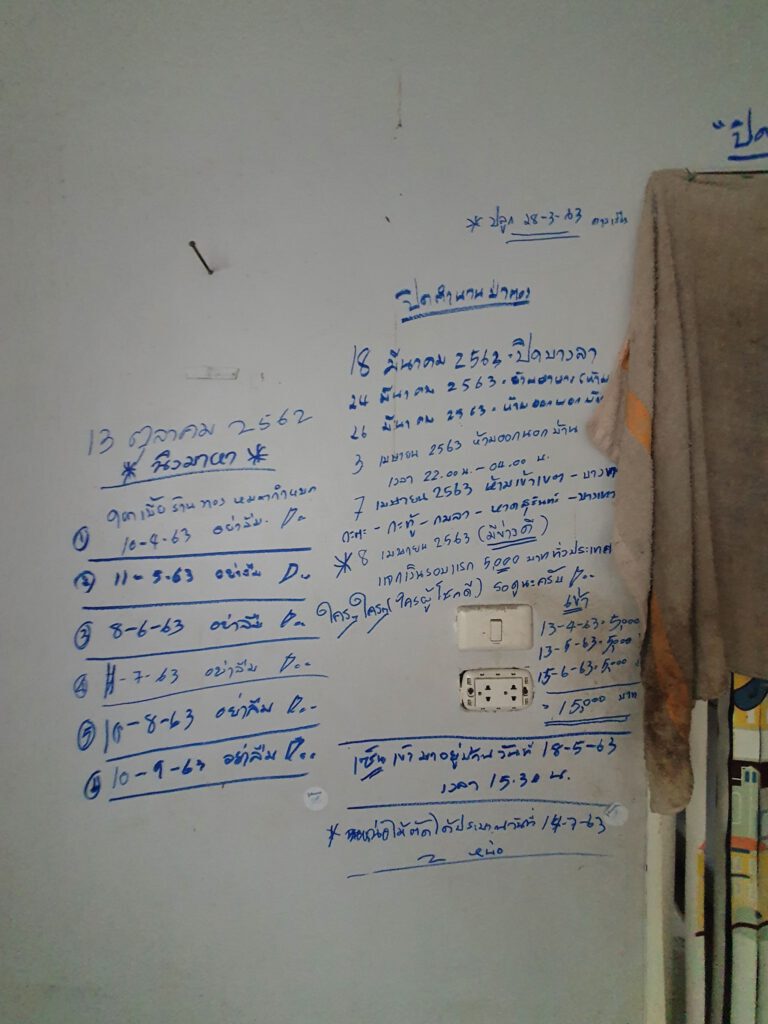 "ปิด
* ปลูก 28-3-63
ปิดตำนานป่าตอง
18 มีนาคม 2563 • ปิดบางลา
24 มีนาคม 2563 •
26 มีนาคม 2563 • ห้ามออกนอก
3 เมษายน 2563 ห้ามออกนอกบ้าน
เวลา 22.00 น. - 04.00 น.
7 เมษายน 2563 ห้ามเข้าเขต -
กะตะ - กะทู้ - กมลา - หาดสุรินทร์ -
* 8 เมษายน 2563 (มีข่าวดี)
แจกเงินรอบแรก 5,000 บาท ทั่วประเทศ
ใครๆ (ใครผู้โชคดี) รอดูนะครับ
เข้า
13-4-63. 5,000
13-5-63. 5,000
15-6-63. 5,000
= 15,000 บาท
เข้ามาอยู่ วันที่ 18-5-63
เวลา 15.30 น.
* หน่อไม้ตัดได้ประมาณวันที่ 14-7-63
2 หน่อ
13 ตุลาคม 2562
* *
① ร้านทอง
10-4-63 อย่าลืม
② 11-5-63 อย่าลืม
③ 8-6-63 อย่าลืม
④ 11-7-63 อย่าลืม
⑤ 10-8-63 อย่าลืม
⑥ 10-9-63 อย่าลืม